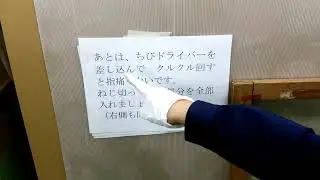 あとは、ちびドライバーを
差し込んで クルクル回す
と指痛 いです。
ねじ切っ 分を全部
入れましょ
(右側も